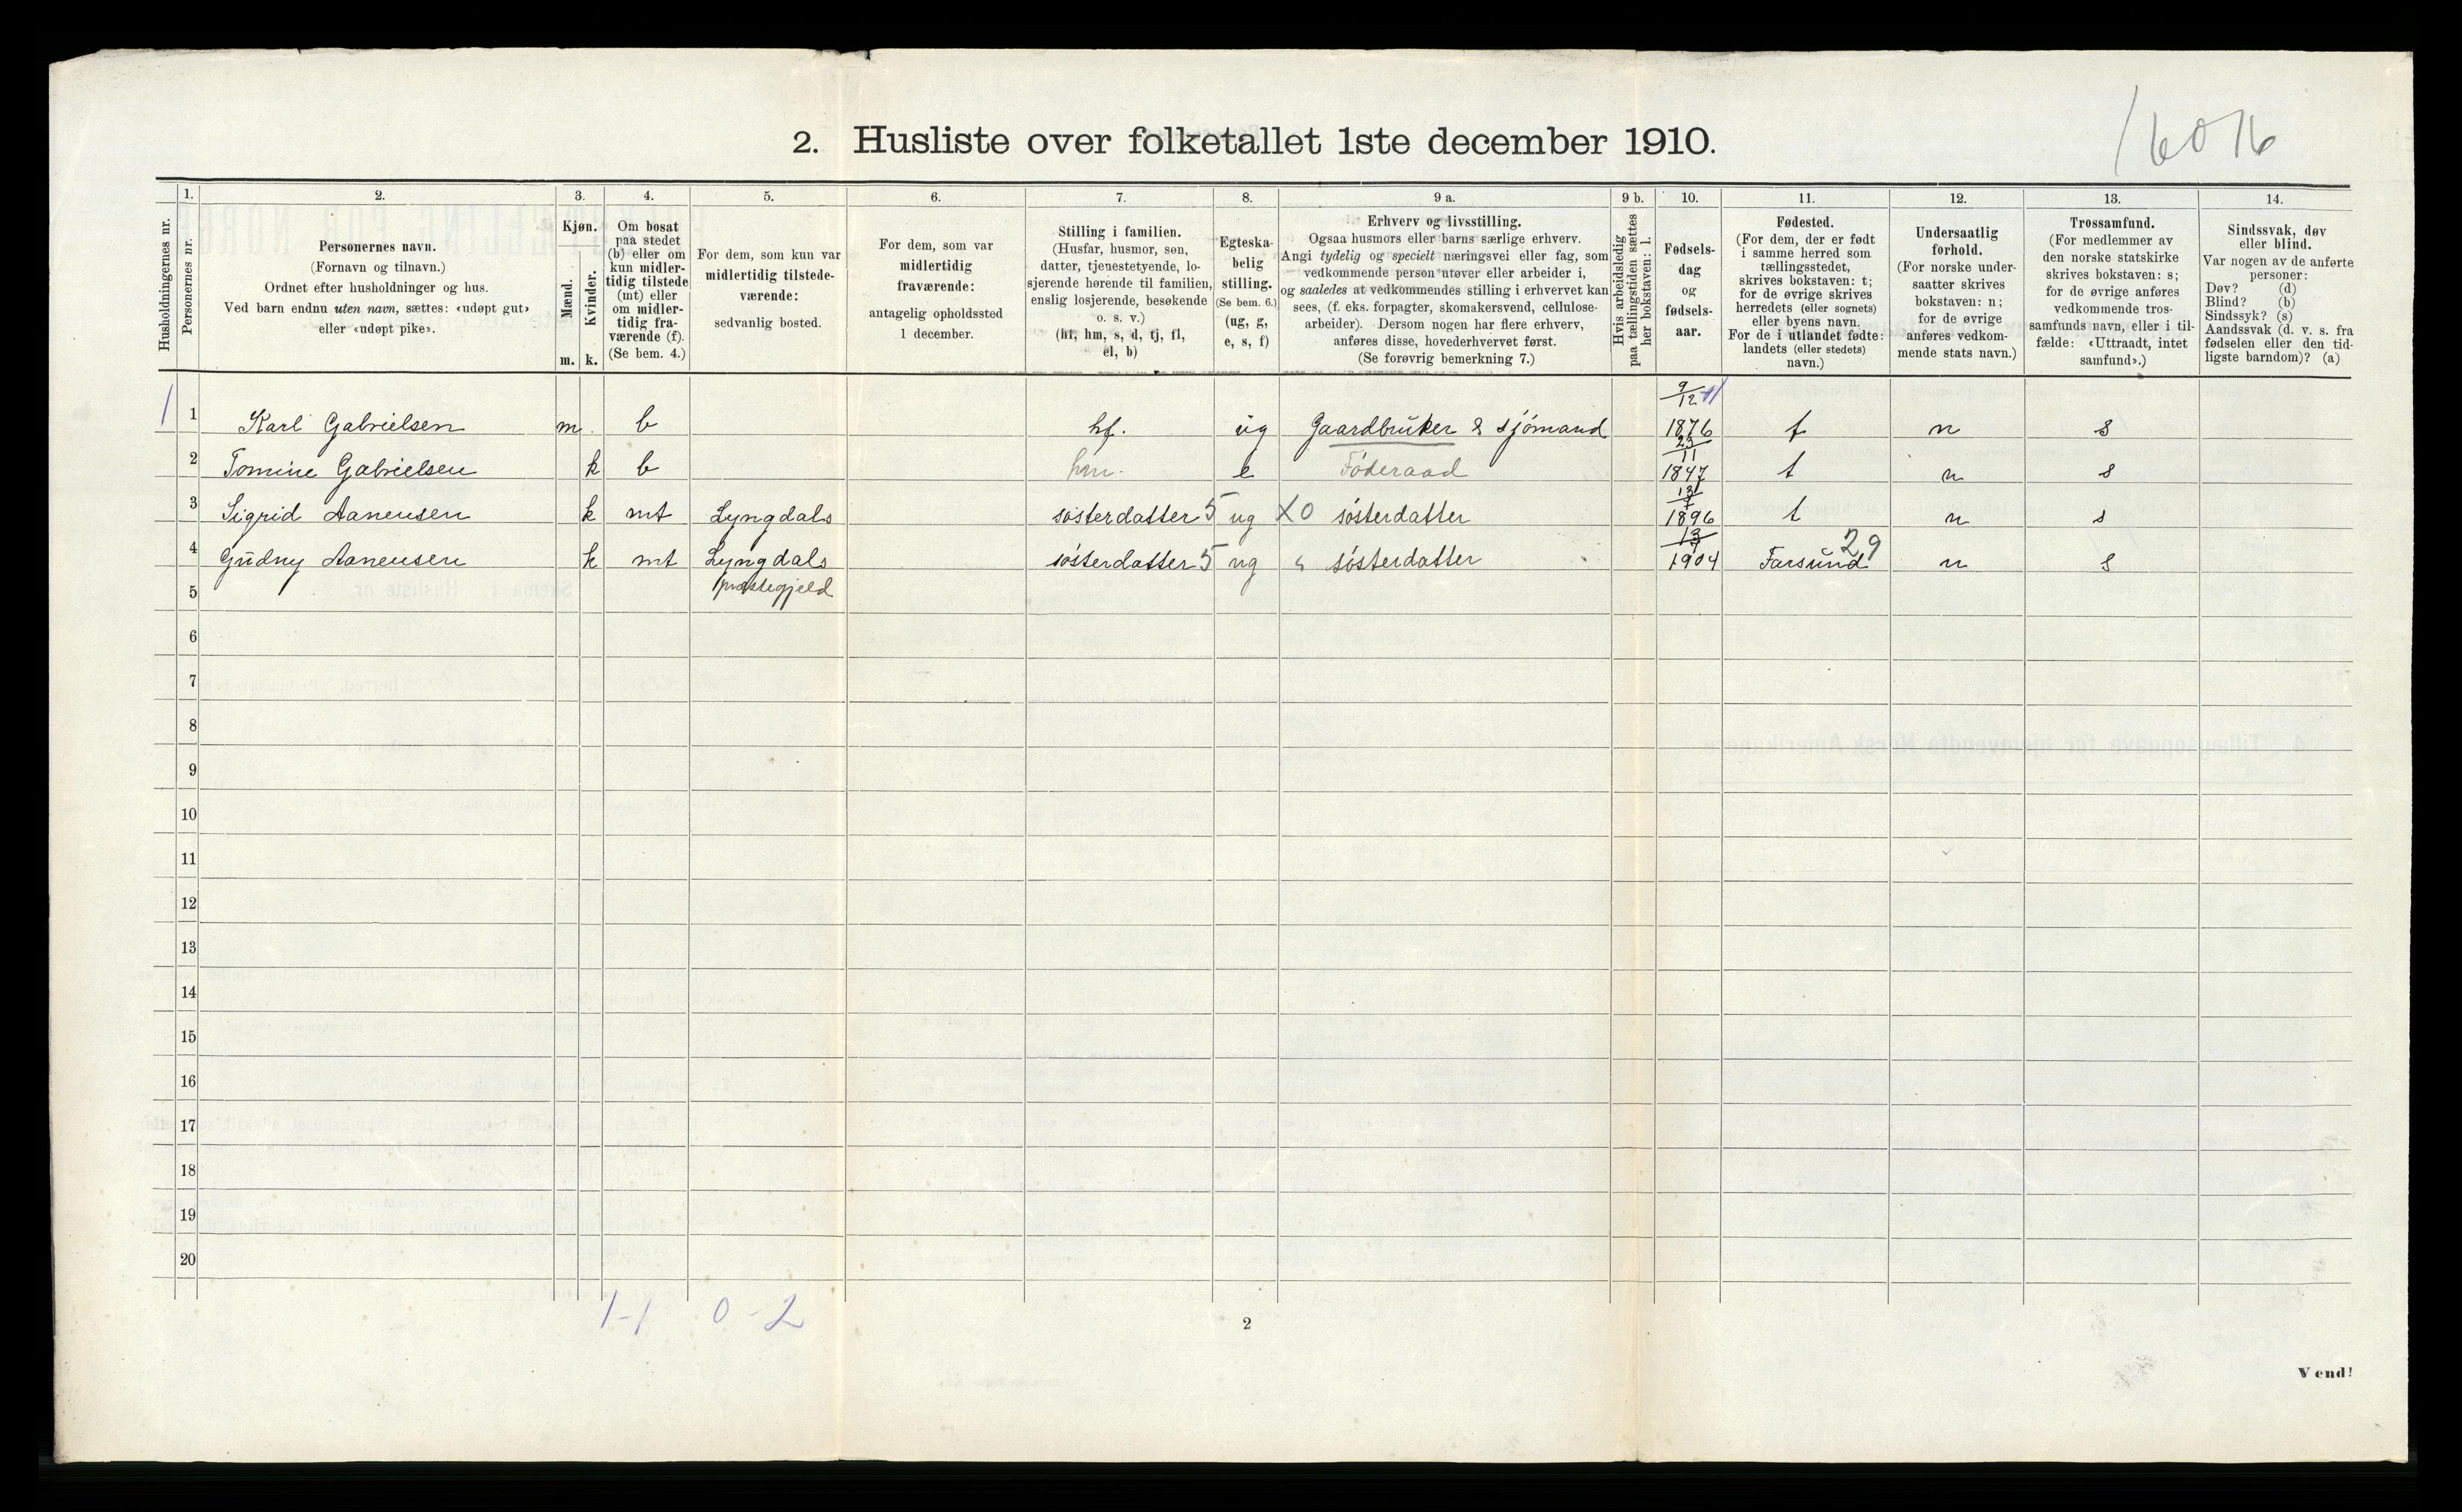 16076
2. Husliste over folketallet 1ste december 1910.
Husholdningernes nr.
1.
Personernes nr.
2.
Personernes navn.
(Fornavn og tilnavn.)
Ordnet efter husholdninger og hus.
Ved barn endnu uten navn, sættes: «udøpt gut»
eller «udøpt pike».
3.
Kjøn.
Mænd.
m.
Kvinder.
k.
4.
Om bosat
paa stedet
(b) eller om
kun midler-
tidig tilstede
(mt) eller
om midler-
tidig fra-
værende (f).
(Se bem. 4.)
5.
For dem, som kun var
midlertidig tilstede-
værende:
sedvanlig bosted.
6.
For dem, som var
midlertidig
fraværende:
antagelig opholdssted
1 december.
7.
Stilling i familien.
(Husfar, husmor, søn,
datter, tjenestetyende, lo-
sjerende hørende til familien,
enslig losjerende, besøkende
o. s. v.)
(hf, hm, s, d, tj, fl,
el, b)
8.
Egteska-
belig
stilling.
(Se bem. 6.)
(ug, g,
e, s, f)
9 a.
Erhverv og livsstilling.
Ogsaa husmors eller barns særlige erhverv.
Angi tydelig og specielt næringsvei eller fag, som
vedkommende person utøver eller arbeider i,
og saaledes at vedkommendes stilling i erhvervet kan
sees, (f. eks. forpagter, skomakersvend, cellulose-
arbeider). Dersom nogen har flere erhverv,
anføres disse, hovederhvervet først.
(Se forøvrig bemerkning 7.)
9 b.
Hvis arbeidsledig
paa tællingstiden sættes
her bokstaven: l.
10.
Fødsels-
dag
og
fødsels-
aar.
11.
Fødested.
(For dem, der er født
i samme herred som
tællingsstedet,
skrives bokstaven: t;
for de øvrige skrives
herredets (eller sognets)
eller byens navn.
For de i utlandet fødte:
landets (eller stedets)
navn.)
12.
Undersaatlig
forhold.
(For norske under-
saatter skrives
bokstaven: n;
for de øvrige
anføres vedkom-
mende stats navn.)
13.
Trossamfund.
(For medlemmer av
den norske statskirke
skrives bokstaven: s;
for de øvrige anføres
vedkommende tros-
samfunds navn, eller i til-
fælde: «Uttraadt, intet
samfund».)
14.
Sindssvak, døv
eller blind.
Var nogen av de anførte
personer:
Døv? (d)
Blind? (b)
Sindssyk? (s)
Aandssvak (d. v. s. fra
fødselen eller den tid-
ligste barndom)? (a)
1 1 Karl Gabrielsen m. b hf. ug Gaardbruker & sjómand 9/12 1876 t n s
2 Tomine Gabrielsen k b hm. e Fóderaad 23/11 1847 t n s
3 Sigrid Aanensen k mt Lyngdals sósterdatter 5 ug X0 sósterdatter 1896 t n s
4 Gudny Aanensen k mt Lyngdals sósterdatter 5 ug " sósterdatter 1904 Farsund 29 n s
5 præstegjeld
6
7
8
9
10
11
12
13
14
15
16
17
18
19
20
1-1 0-2
2
Vend!